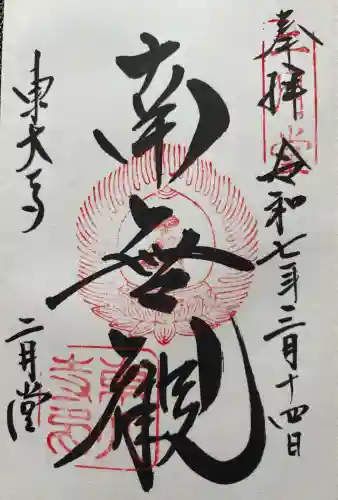 奉拝
令和七年三月十四日
南無観
東大寺
二月堂